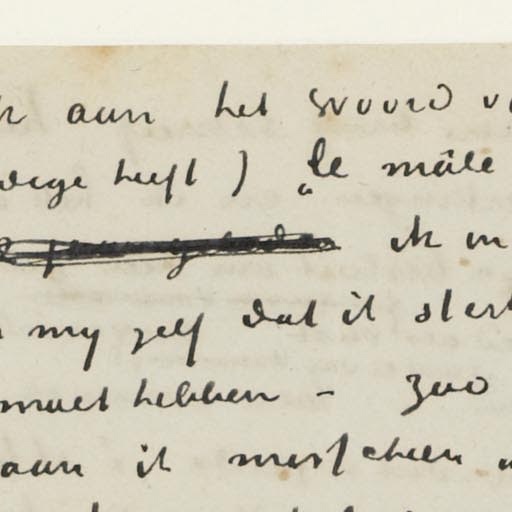 aan het woord
wege heeft) „le mâle
ik
my zelf dat ik sterk
moet hebben – zoo
aan ik misschien